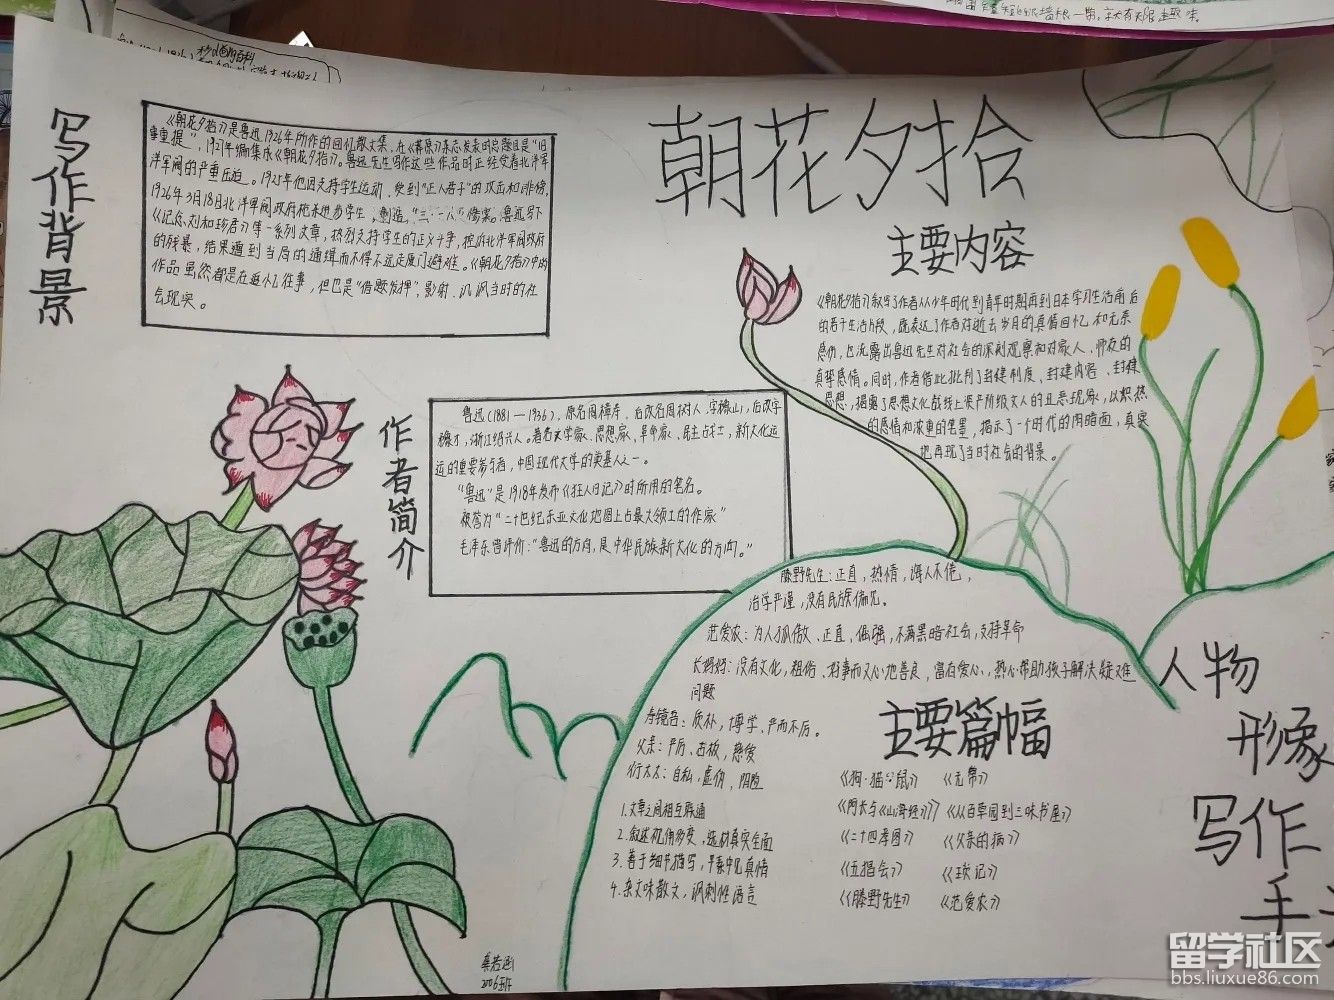 朝花夕拾
写作背景
《朝花夕拾》是鲁迅1926年所作的回忆散文集，在《莽原》杂志发表时总题目是"旧
事重提"，1927年编集承《朝花夕拾》。鲁迅先生写作这些作品时正经受着北洋军
洋军阀的严重压迫。1925年他因支持学生运动，受到"正人君子"的攻击和诽谤，
1926年3月18日北洋军阀政府枪杀进步学生，制造"三·一八"惨案。鲁迅写下
《记念刘和珍君》等一系列文章，热烈支持学生的正义斗争，控诉北洋军阀政府
的残暴，结果遭到当局的通缉而不得不远走厦门避难。《朝花夕拾》中的
作品虽然都是在追忆往事，但也是"借题发挥"，影射、讥讽当时的社
会现实。
主要内容
《朝花夕拾》叙写了作者从少年时代到青年时期再到日本学习生活前后
的若干生活片段，既表达了作者对逝去岁月的真情回忆和无奈
感伤，也流露出鲁迅先生对社会的深刻观察和对家人、师友的
真挚感情。同时，作者借此批判了封建制度、封建内容、封建
思想，揭露了思想文化战线上资产阶级文人的丑恶现象，以炽热
的感情和浓重的笔墨，揭示了一个时代的阴暗面，真实
地再现了当时社会的背景。
作者简介
鲁迅（1881—1936），原名周樟寿，后改名周树人，字豫山，后改字
豫才，浙江绍兴人。著名文学家、思想家、革命家、民主战士，新文化运
运的重要参与者，中国现代文学的奠基人之一。
"鲁迅"是1918年发布《狂人日记》时所用的笔名。
被誉为"二十世纪东亚文化地图上占最大领土的作家"
毛泽东曾评价："鲁迅的方向，是中华民族新文化的方向。"
藤野先生：正直，热情，诲人不倦，
治学严谨，没有民族偏见。
范爱农：为人孤傲、正直、倔强，不满黑暗社会，支持革命
长妈妈：没有文化，粗俗、好事而又心地善良，富有爱心，热心帮助孩子解决疑难
问题
寿镜吾：质朴，博学、严而不厉。
父亲：严厉、古板，慈爱
衍太太：自私，虚伪，阴险
人物
形象
主要篇幅
《狗·猫·鼠》 《无常》
《阿长与《山海经》》 《从百草园到三味书屋》
《二十四孝图》 《父亲的病》
《五猖会》 《琐记》
《藤野先生》 《范爱农》
1.文章之间相互联通
2.叙述视角多变，选材真实全面
3.善于细节描写，平素中见真情
4.杂文味散文，讽刺性语言
写作
手
2006班
留学社区
bbs.liuxue86.com